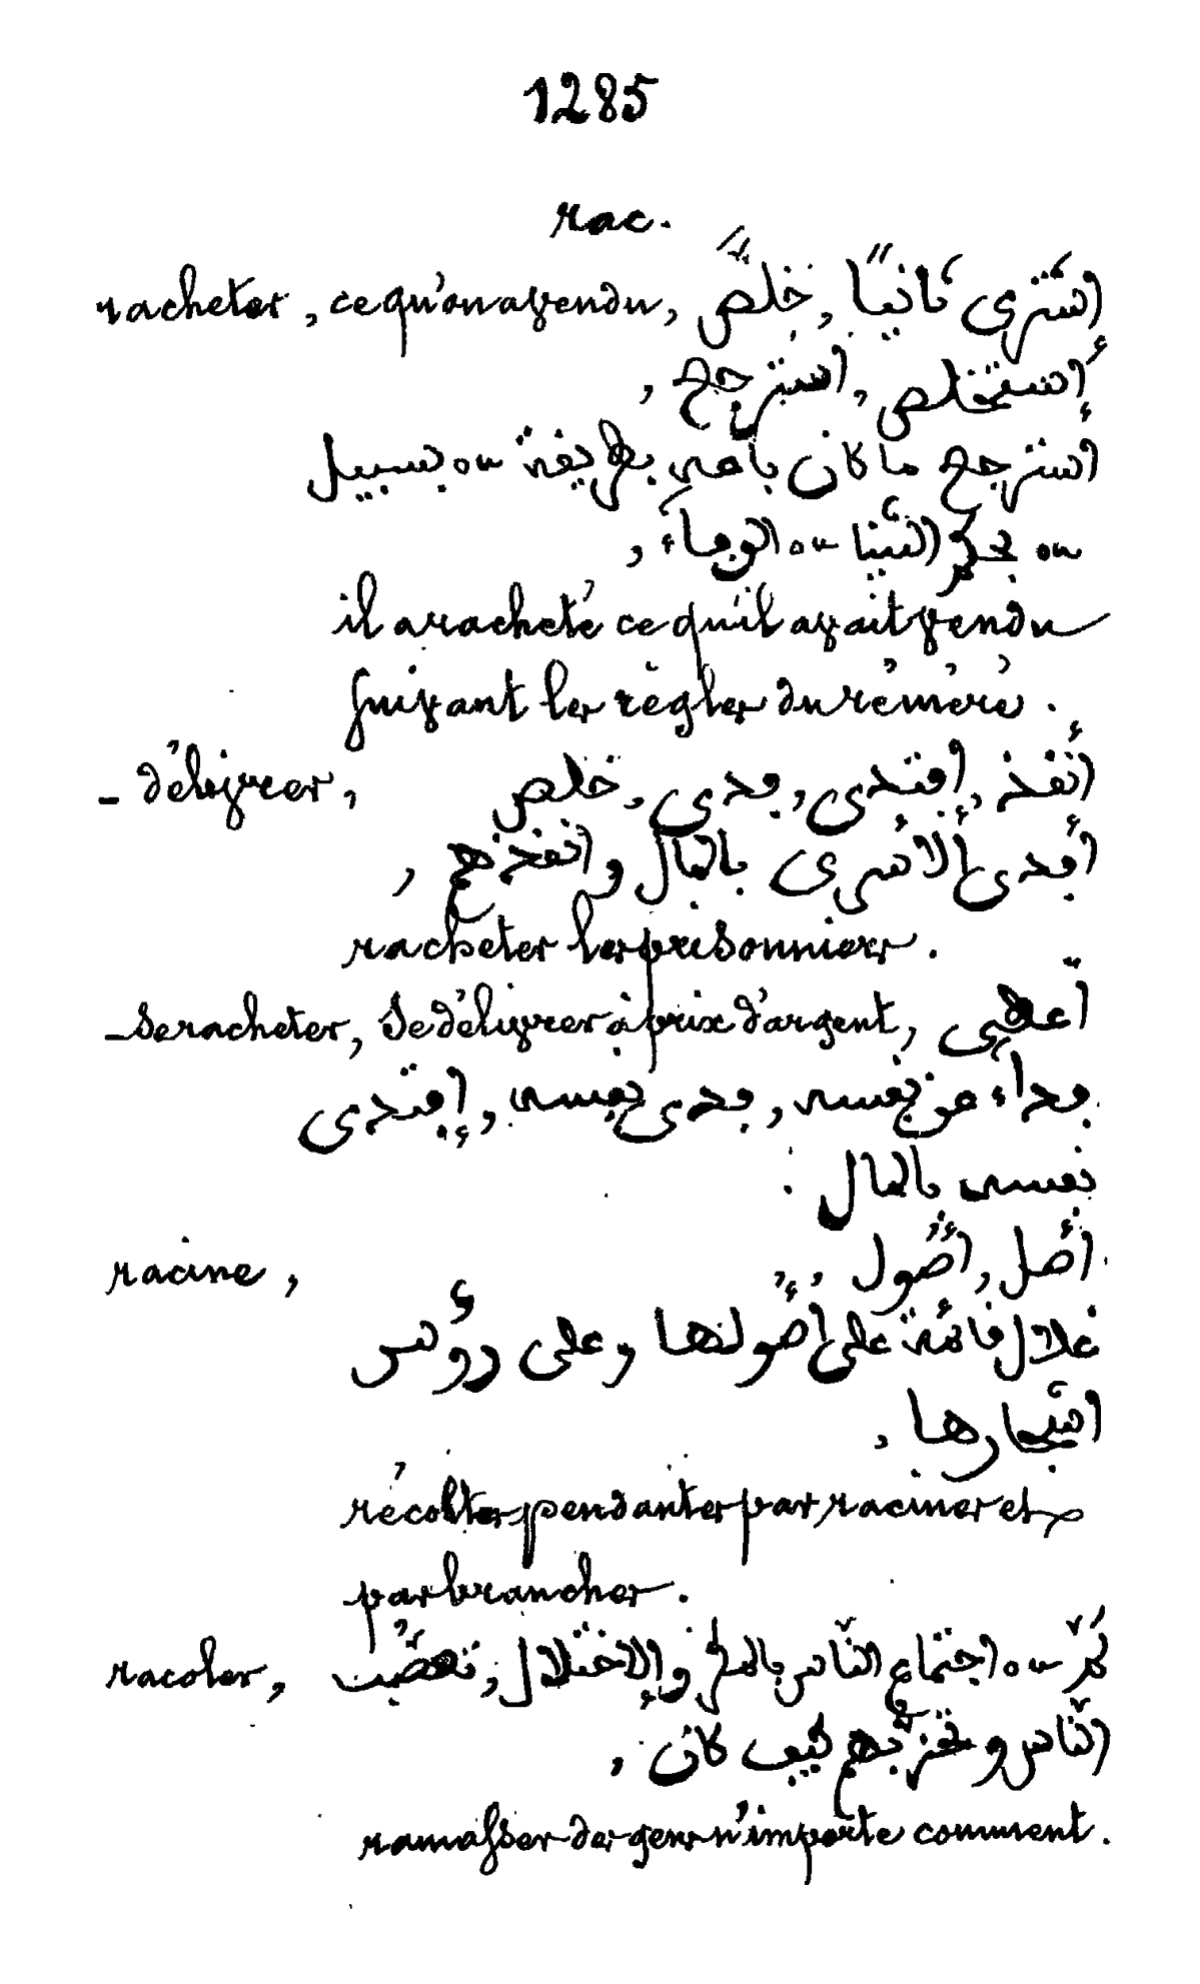 1285
rac.
racheter, ce qu'on a vendu, إشترى ثانيًا, خلّص
إستخلص, استرجع,
استرجع ما كان باعه بطريقة ou بسبيل
ou بحكم الثنيا ou الوفاء,
il a racheté ce qu'il avait vendu
suivant les règles du réméré.
- délivrer, أنفذ, إفتدى, فدى, خلص
أفدى الأسرى بالمال وانفذهم,
racheter les prisonniers.
- se racheter, se délivrer à prix d'argent, أعطى
فداء عن نفسه, فدى نفسه, إفتدى
نفسه بالمال.
racine, أصل, أصول,
غلال قائمة على أصولها وعلى رؤس
اشجارها,
récoltes pendantes par racines et
par branches.
racoler, ou اجتماع الناس بالمكر والإختلال,
الناس و كيف كان,
ramasser des gens n'importe comment.